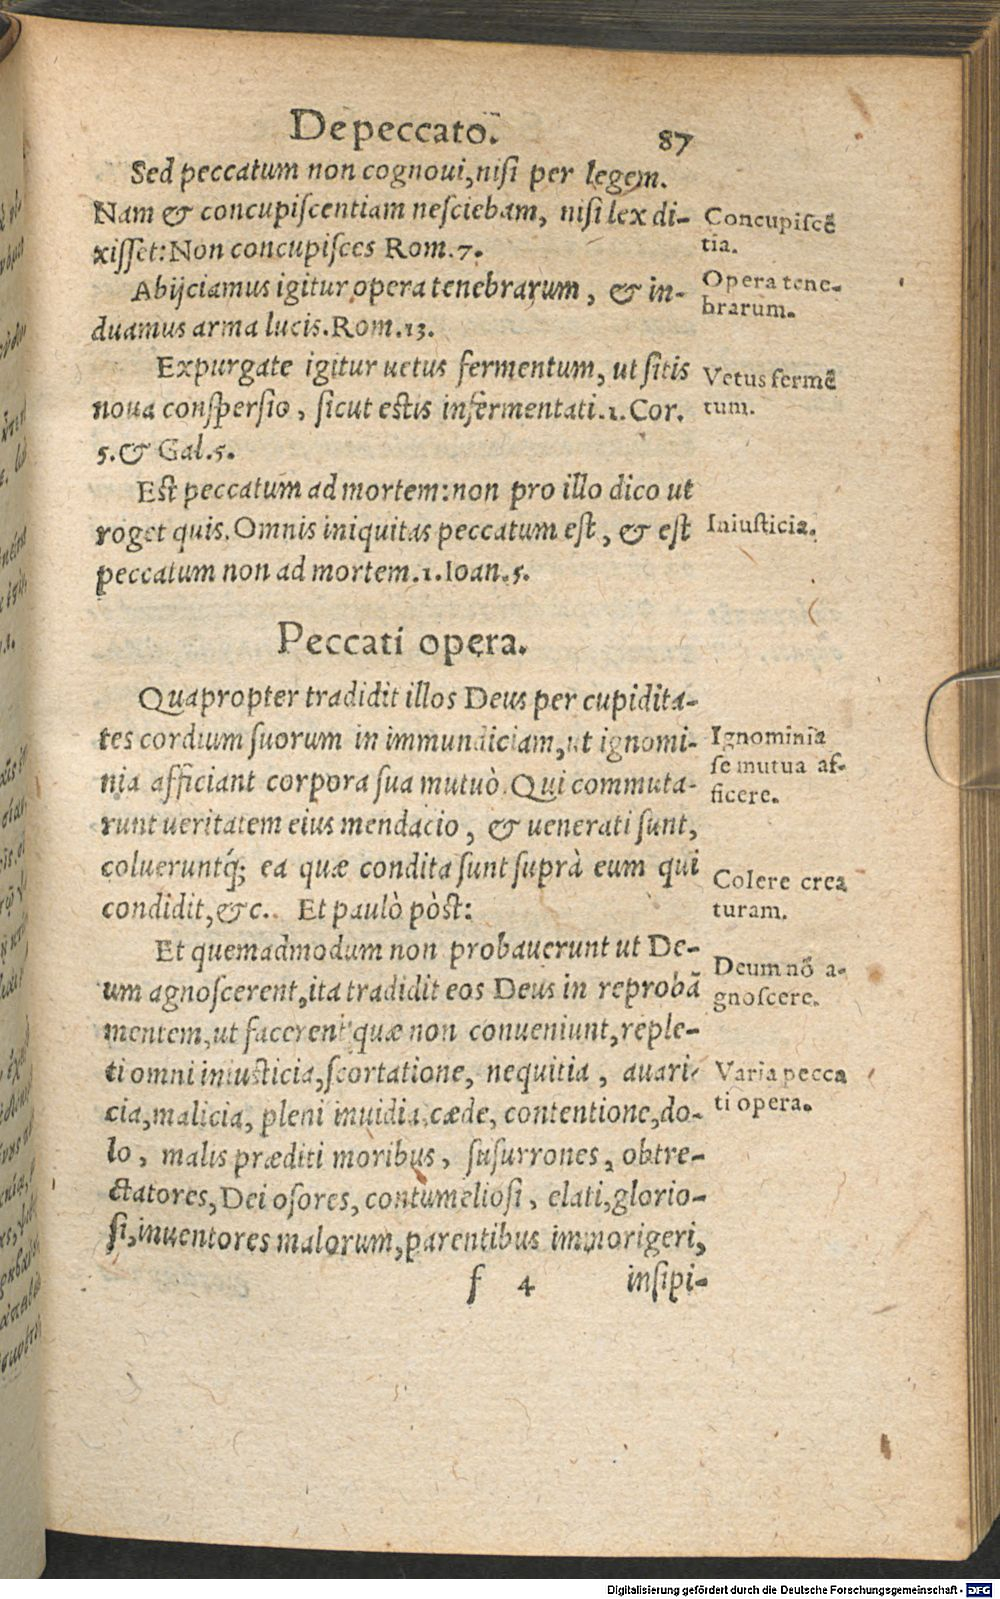 De peccato. 87
Sed peccatum non cognoui, nisi per legem.
Nam & concupiſcentiam neſciebam, niſi lex di-
xiſſet: Non concupiſces Rom. 7.
Concupiſcẽ
tia.
Abijciamus igitur opera tenebrarum, & in-
duamus arma lucis. Rom. 13.
Opera tene-
brarum.
Expurgate igitur uetus fermentum, ut ſitis
noua conſperſio, ſicut estis infermentati. 1. Cor.
5. & Gal. 5.
Vetus fermẽ
tum.
Est peccatum ad mortem: non pro illo dico ut
roget quis. Omnis iniquitas peccatum eſt, & eſt
peccatum non ad mortem. 1. Ioan. 5.
Iniuſticia.
Peccati opera.
Quapropter tradidit illos Deus per cupidita-
tes cordium ſuorum in immundiciam, ut ignomi-
nia afficiant corpora ſua mutuò. Qui commuta-
runt ueritatem eius mendacio, & uenerati ſunt,
colueruntq́; ea quæ condita ſunt ſuprà eum qui
condidit, &c. Et paulò pòst:
Ignominia
ſe mutua af-
ficere.
Colere crea
turam.
Et quemadmodum non probauerunt ut De-
um agnoſcerent, ita tradidit eos Deus in reprobã
mentem, ut facerent quæ non conueniunt, reple-
ti omni iniusticia, ſcortatione, nequitia, auari-
cia, malicia, pleni inuidia, cæde, contentione, do-
lo, malis præditi moribus, ſuſurrones, obtre-
ctatores, Dei oſores, contumelioſi, elati, glorio-
ſi, inuentores malorum, parentibus immorigeri,
Deum nõ a-
gnoſcere.
Varia pecca
ti opera.
f 4 inſipi-
Digitalisierung gefördert durch die Deutsche Forschungsgemeinschaft - DFG